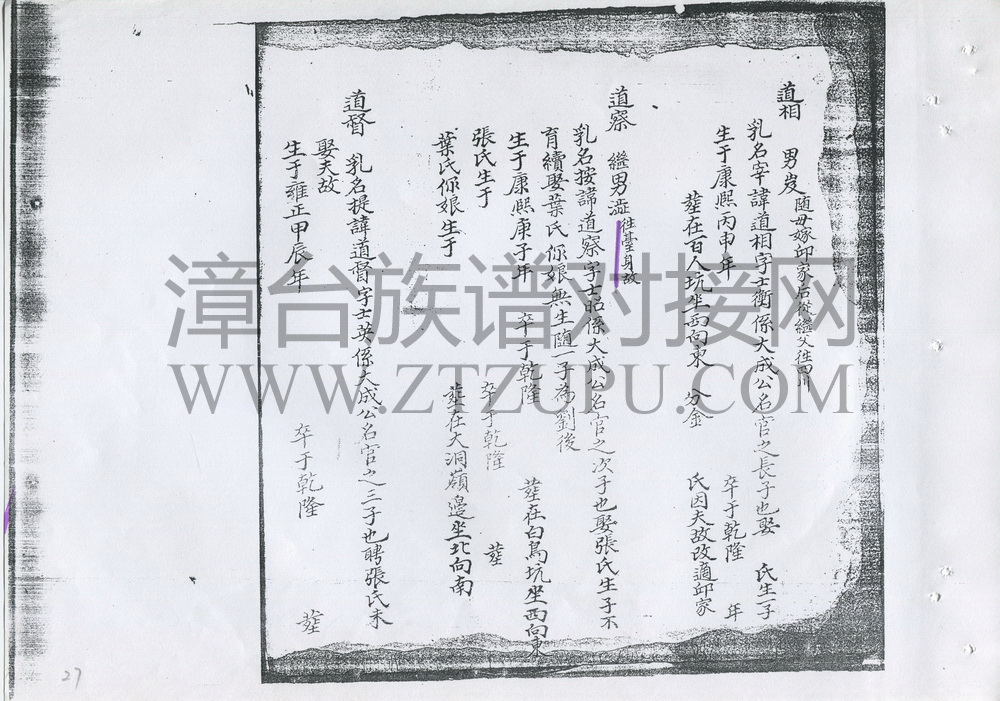 道相 男岌 随母嫁邱家后從繼父往四川
乳名宰諱道相字士衡係大成公名官之長子也娶 氏生一子
生于康熙丙申年 卒于乾隆 年
塟在百人坑坐西向東 分金 氏因夫故改適邱家
道察 繼男 往臺身故
乳名按諱道察字士昭係大成公名官之次子也娶張氏生子不
育續娶葉氏伱娘無生随一子為劉後
生于康熙庚子年 卒于乾隆 塟在白鳥坑坐西向東
張氏生于 卒于乾隆 塟
葉氏伱娘生于 塟在大洞嶺邊坐北向南
道督 乳名提諱道督字士英係大成公名官之三子也聘張氏未
娶夫故
生于雍正甲辰年 卒于乾隆 塟
漳台族谱对接网
WWW.ZTZUPU.COM
27